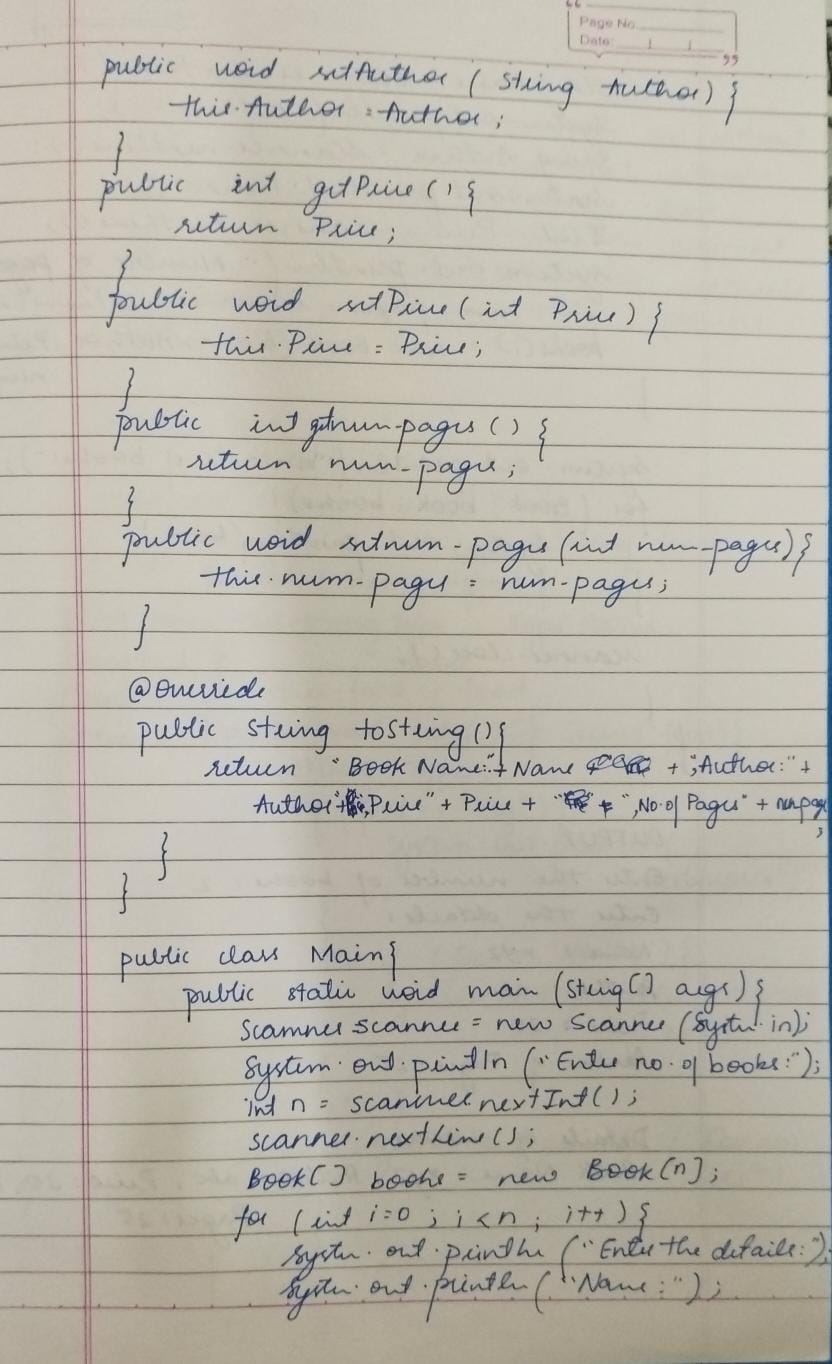 Page No.
Date:
public void setAuthor ( String Author) {
this.Author = Author ;
}
public int getPrice () {
return Price ;
}
public void setPrice ( int Price ) {
this.Price = Price ;
}
public int getnum-pages () {
return num-pages ;
}
public void setnum-pages (int num-pages) {
this.num-pages = num-pages ;
}
@Override
public String toString () {
return "Book Name:" + Name + ",Author:" +
Author + ",Price" + Price + ",No.of Pages" + numpages
;
}
}
public class Main {
public static void main (String[] args) {
Scanner scanner = new Scanner (System.in);
System.out.println ("Enter no. of books:");
int n = scanner.nextInt();
scanner.nextLine();
Book[] books = new Book[n];
for (int i=0 ; i<n ; i++) {
System.out.println ("Enter the details:");
System.out.println ("Name:");